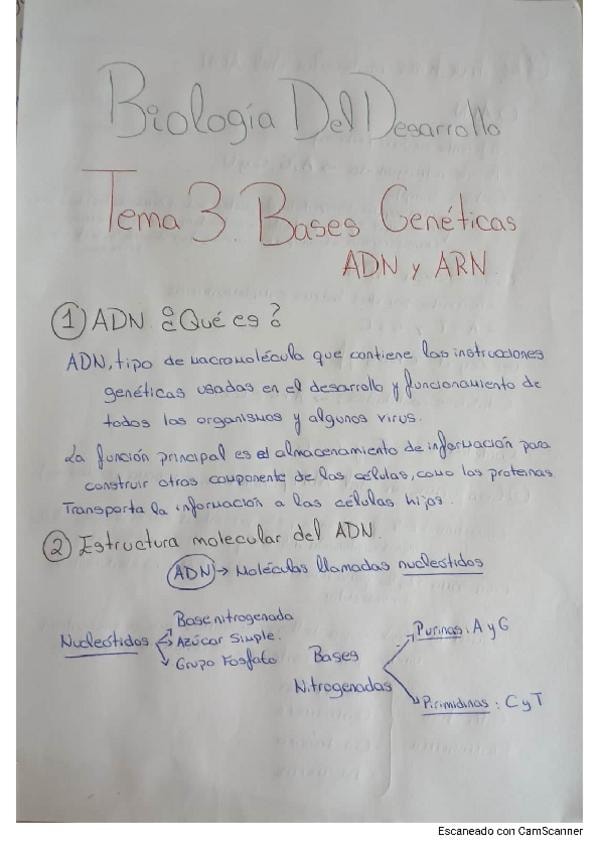 Biología Del Desarrollo
Tema 3. Bases Genéticas
ADN y ARN
① ADN ¿Qué es?
ADN, tipo de macromolécula que contiene las instrucciones
genéticas usadas en el desarrollo y funcionamiento de
todos los organismos y algunos virus.
La función principal es el almacenamiento de información para
construir otros componente de las células, como las proteínas
Transporta la información a las células hijas.
② Estructura molecular del ADN.
ADN → Moléculas llamadas nucleótidos
Nucleótidos
Base nitrogenada
Azúcar Simple.
Grupo Fosfato
Bases
Nitrogenadas
Purinas: A y G
Pirimidinas: C y T
Escaneado con CamScanner